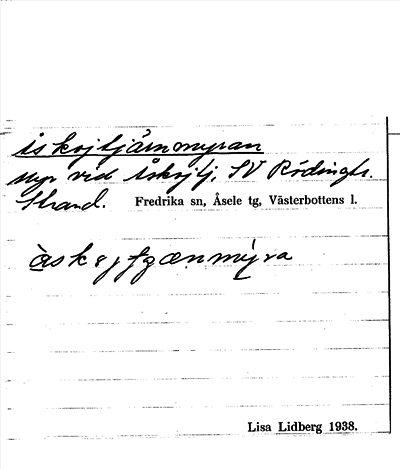 Åskojtjärnmyran
myr vid Åskojtj, SV Rödingtr.
Strand. Fredrika sn, Åsele tg, Västerbottens l.
Lisa Lidberg 1938.